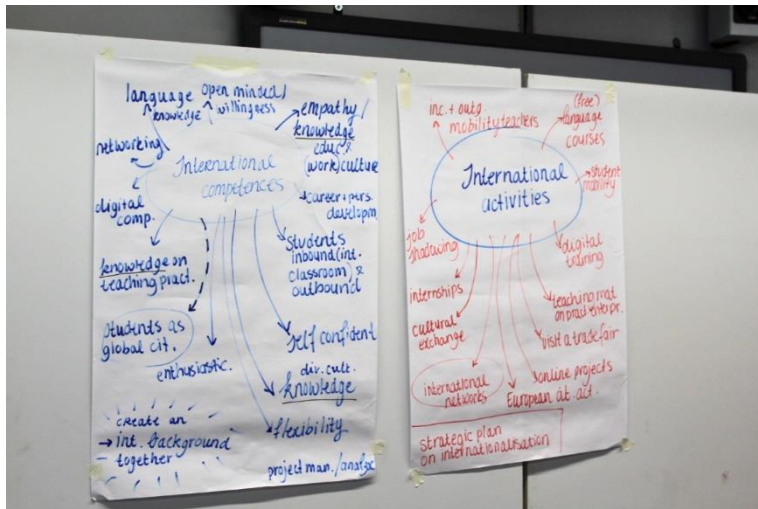 language
knowledge
open minded/
willingness
empathy/
knowledge
educ. &
(work)culture
networking
International
competences
digital
comp.
career + pers.
developm.
knowledge on
teaching pract.
students
inbound (int.
classroom) &
outbound
students as
global cit.
enthusiastic.
self confident
div. cult.
knowledge
flexibility
create an
int. background
together
project man./
inc. + outg.
mobility teachers
(free)
language
courses
International
activities
student
mobility
job
shadowing
digital
training
internships
teaching mat
on pract. enterpr.
cultural
exchange
visit a trade fair
international
networks
online projects
European cit. act.
strategic plan
on internationalisation